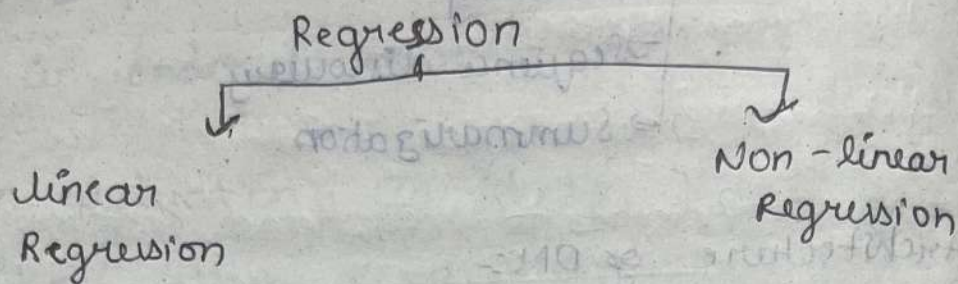 Regression
linear
Regression
Non-linear
Regression